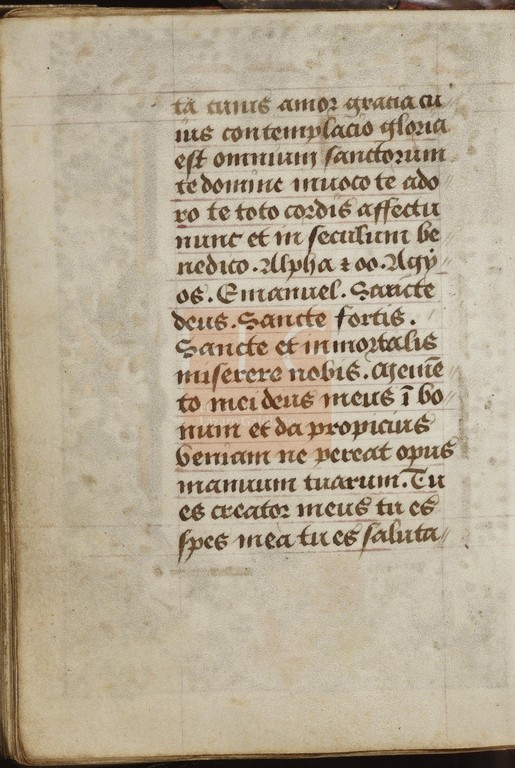 ta cuius amor gracia cu
ius contemplacio gloria
est omnium sanctorum
te domine inuoco te ado
ro te toto cordis affectu
nunc et in seculum be
nedico. Alpha & oo. Agy
os. Emanuel. Sancte
deus. Sancte fortis.
Sancte et inmortalis
miserere nobis. Memē
to mei deus meus ī bo
num et da propicius
veniam ne pereat opus
manuum tuarum. Tu
es creator meus tu es
spes mea tu es saluta//